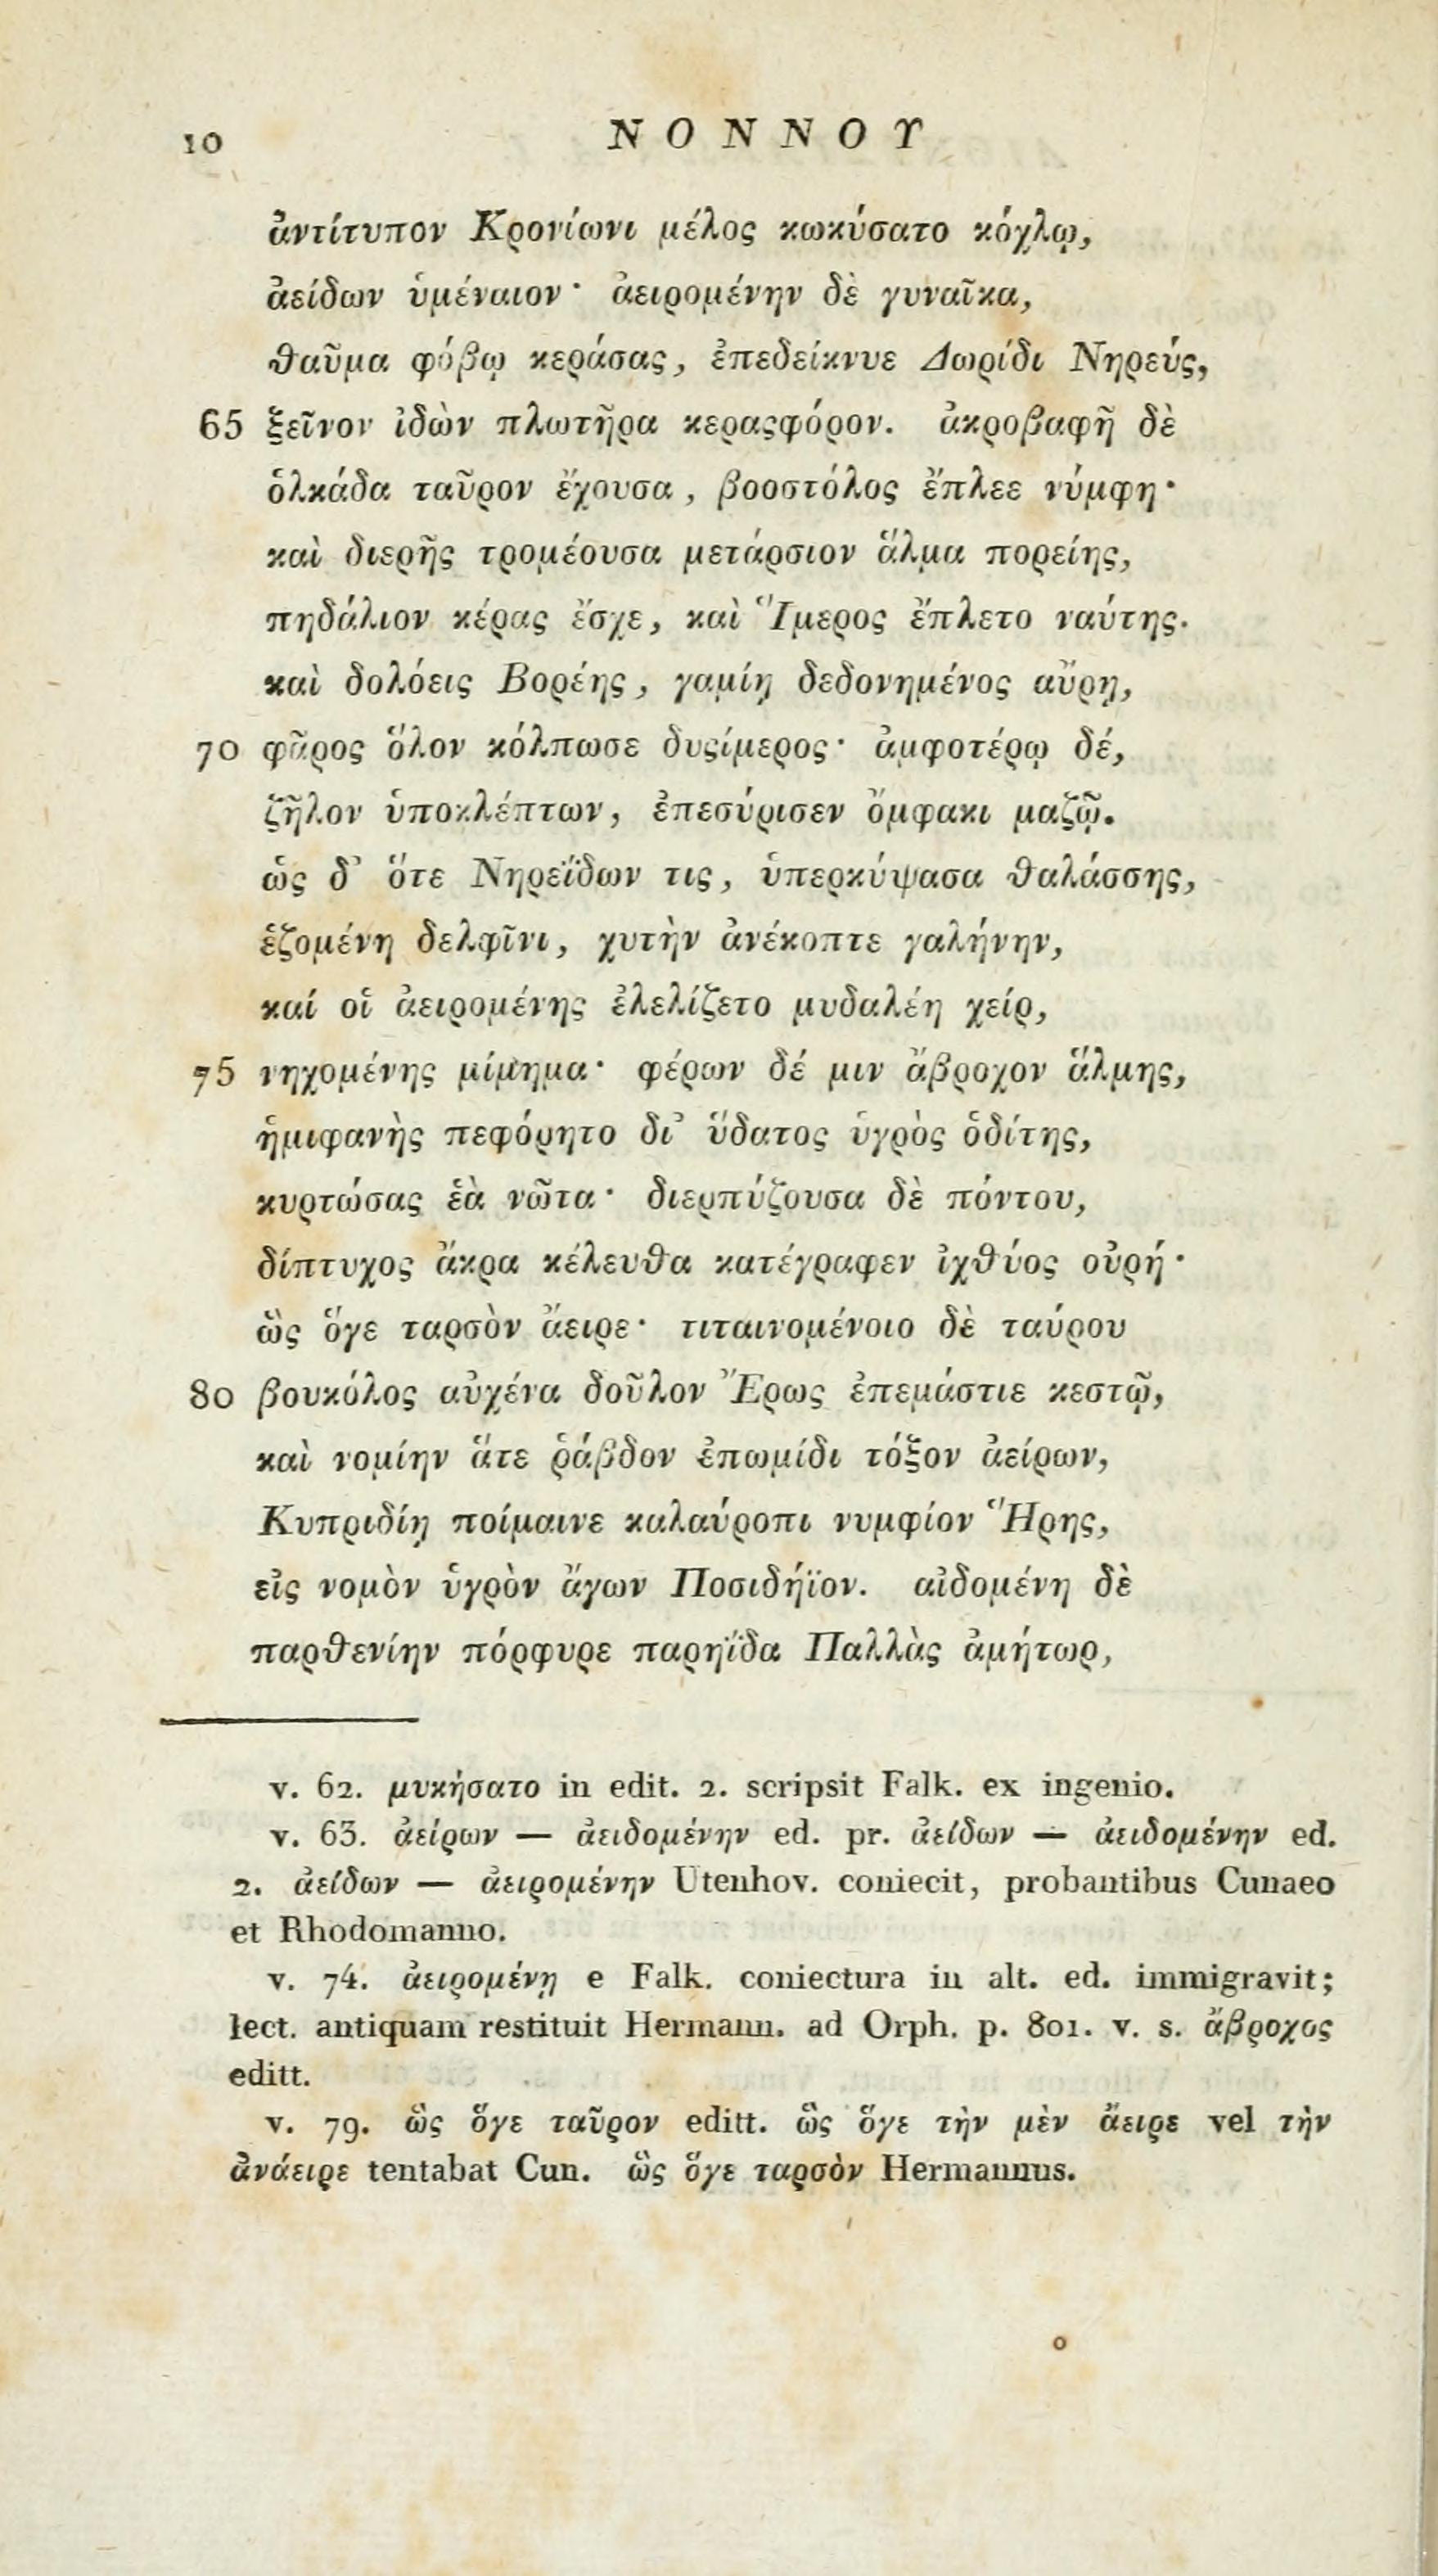 10 ΝΟΝΝΟΥ
ἀντίτυπον Κρονίωνι μέλος κωκύσατο κόχλῳ,
ἀείδων ὑμέναιον· ἀειρομένην δὲ γυναῖκα,
θαῦμα φόβῳ κεράσας, ἐπεδείκνυε Δωρίδι Νηρεύς,
65 ξεῖνον ἰδὼν πλωτῆρα κεραςφόρον. ἀκροβαφῆ δὲ
ὁλκάδα ταῦρον ἔχουσα, βοοστόλος ἔπλεε νύμφη·
καὶ διερῆς τρομέουσα μετάρσιον ἅλμα πορείης,
πηδάλιον κέρας ἔσχε, καὶ Ἵμερος ἔπλετο ναύτης.
καὶ δολόεις Βορέης, γαμίῃ δεδονημένος αὔρῃ,
70 φᾶρος ὅλον κόλπωσε δυςίμερος· ἀμφοτέρῳ δέ,
ζῆλον ὑποκλέπτων, ἐπεσύρισεν ὄμφακι μαζῷ.
ὡς δ᾽ ὅτε Νηρεΐδων τις, ὑπερκύψασα θαλάσσης,
ἑζομένη δελφῖνι, χυτὴν ἀνέκοπτε γαλήνην,
καί οἱ ἀειρομένης ἐλελίζετο μυδαλέη χείρ,
75 νηχομένης μίμημα· φέρων δέ μιν ἄβροχον ἅλμης,
ἡμιφανὴς πεφόρητο δι᾽ ὕδατος ὑγρὸς ὁδίτης,
κυρτώσας ἑὰ νῶτα· διερπύζουσα δὲ πόντου,
δίπτυχος ἄκρα κέλευθα κατέγραφεν ἰχθύος οὐρή·
ὣς ὅγε ταρσὸν ἄειρε· τιταινομένοιο δὲ ταύρου
80 βουκόλος αὐχένα δοῦλον Ἔρως ἐπεμάστιε κεστῷ,
καὶ νομίην ἅτε ῥάβδον ἐπωμίδι τόξον ἀείρων,
Κυπριδίῃ ποίμαινε καλαύροπι νυμφίον Ἥρης,
εἰς νομὸν ὑγρὸν ἄγων Ποσιδήϊον. αἰδομένη δὲ
παρθενίην πόρφυρε παρηΐδα Παλλὰς ἀμήτωρ,
v. 62. μυκήσατο in edit. 2. scripsit Falk. ex ingenio.
v. 63. ἀείρων — ἀειδομένην ed. pr. ἀείδων — ἀειδομένην ed.
2. ἀείδων — ἀειρομένην Utenhov. coniecit, probantibus Cunaeo
et Rhodomanno.
v. 74. ἀειρομένῃ e Falk. coniectura in alt. ed. immigravit;
lect. antiquam restituit Hermann. ad Orph. p. 801. v. s. ἄβροχος
editt.
v. 79. ὣς ὅγε ταῦρον editt. ὣς ὅγε τὴν μὲν ἄειρε vel τὴν
ἀνάειρε tentabat Cun. ὣς ὅγε ταρσὸν Hermannus.